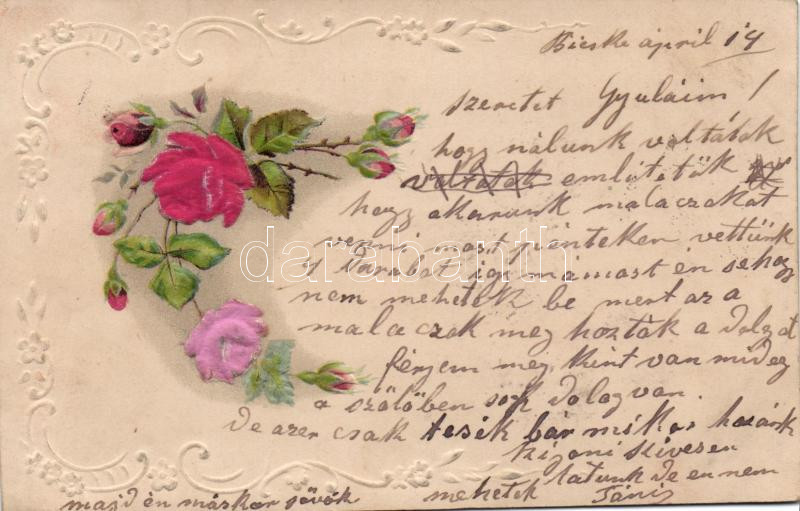 Bicske april 14
szeretet Gyuláim!
hogy nálunk voltátok
említetük
hogy akarunk malaczokat
venni most pénteken vettünk
darabot igy mámost én sehogy
nem mehetek be mert az a
malaczok meg hozták a dolgot
férjem meg kint van mideg
a szölöben sok dolog van.
de azer csak tesék bár mikor hozánk
kijöni szivesen
latunk de en nem
mehetek
majd én máskor jövök
darabanth